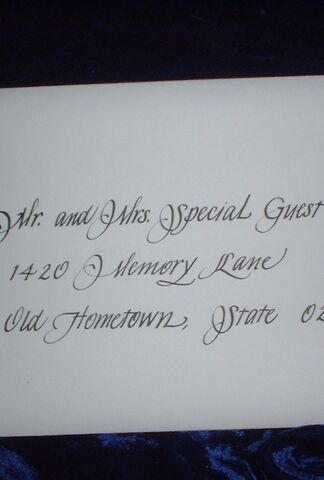 Mr. and Mrs. Special Guest
1420 Memory Lane
Old Hometown, State 02